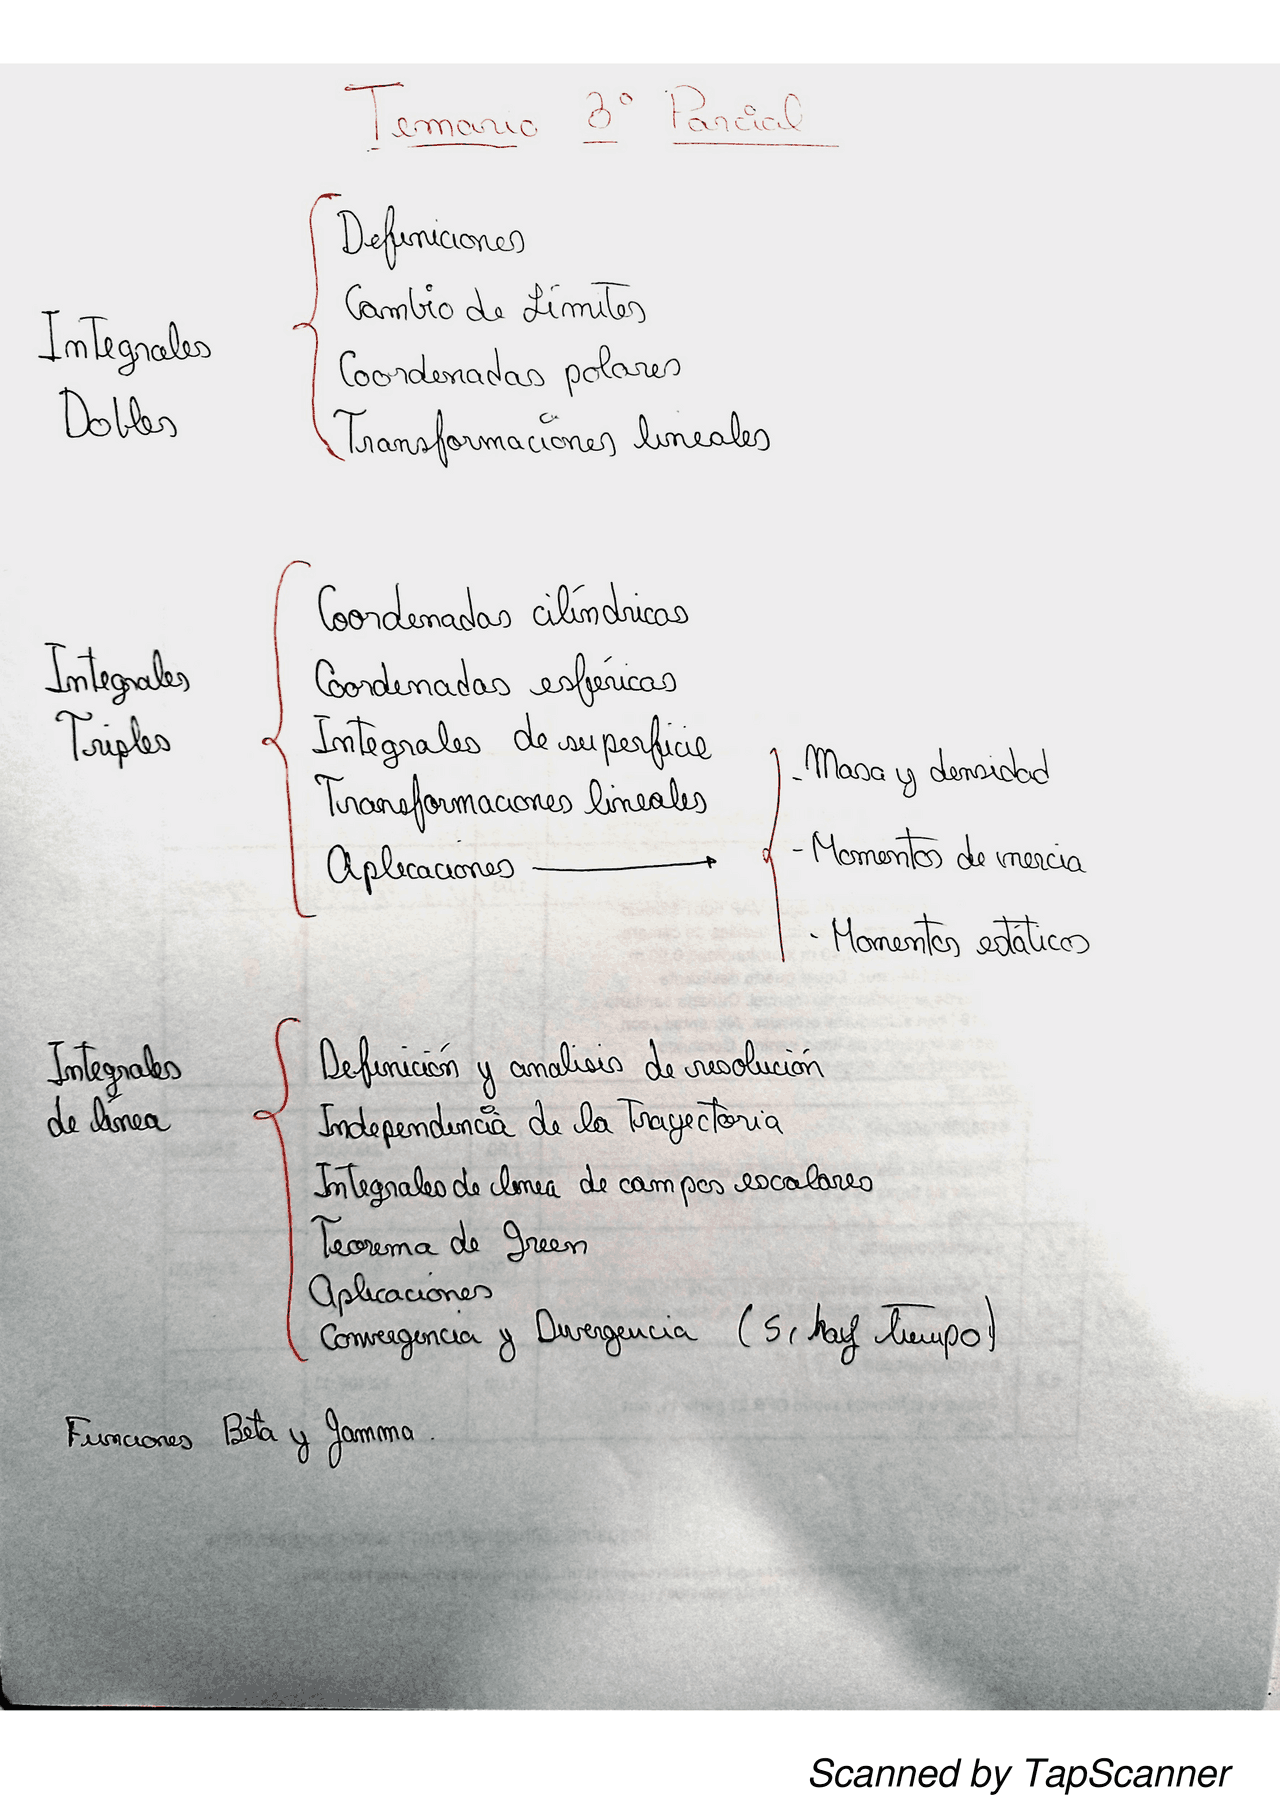 Temario 3° Parcial
Integrales
Dobles
Definiciones
Cambio de Límites
Coordenadas polares
Transformaciones lineales
Integrales
Triples
Coordenadas cilíndricas
Coordenadas esféricas
Integrales de superficie
Transformaciones lineales
Aplicaciones
- Masa y densidad
- Momentos de inercia
- Momentos estáticos
Integrales
de línea
Definición y analisis de resolución
Independencia de la Trayectoria
Integrales de linea de campos escalares
Teorema de Green
Aplicaciones
Convergencia y Divergencia (Si hay tiempo)
Funciones Beta y Gamma.
Scanned by TapScanner